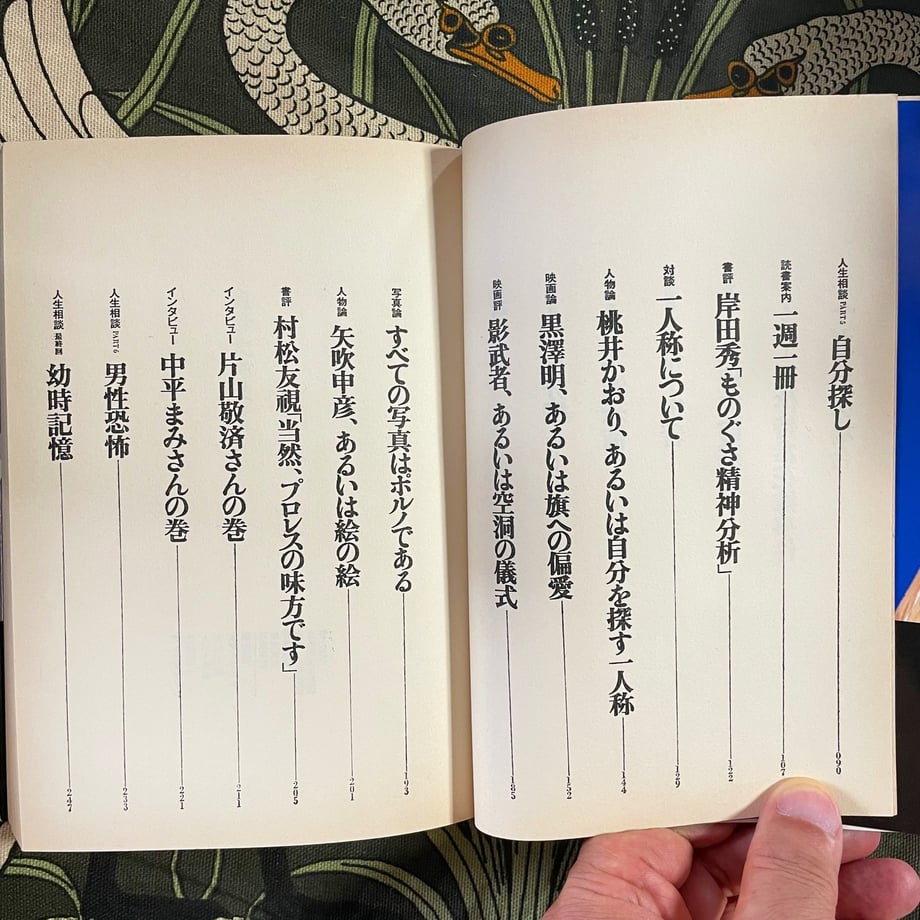 人生相談 PART 5 自分探し 090
読書案内 一週一冊 107
書評 岸田秀「ものぐさ精神分析」 122
対談 一人称について 129
人物論 桃井かおり、あるいは自分を探す一人称 144
映画論 黒澤明、あるいは旗への偏愛 152
映画評 影武者、あるいは空洞の儀式 185
写真論 すべての写真はポルノである 193
人物論 矢吹申彦、あるいは絵の絵 201
書評 村松友視「当然、プロレスの味方です」 205
インタビュー 片山敬済さんの巻 211
インタビュー 中平まみさんの巻 221
人生相談 PART 6 男性恐怖 233
人生相談 最終回 幼時記憶 247